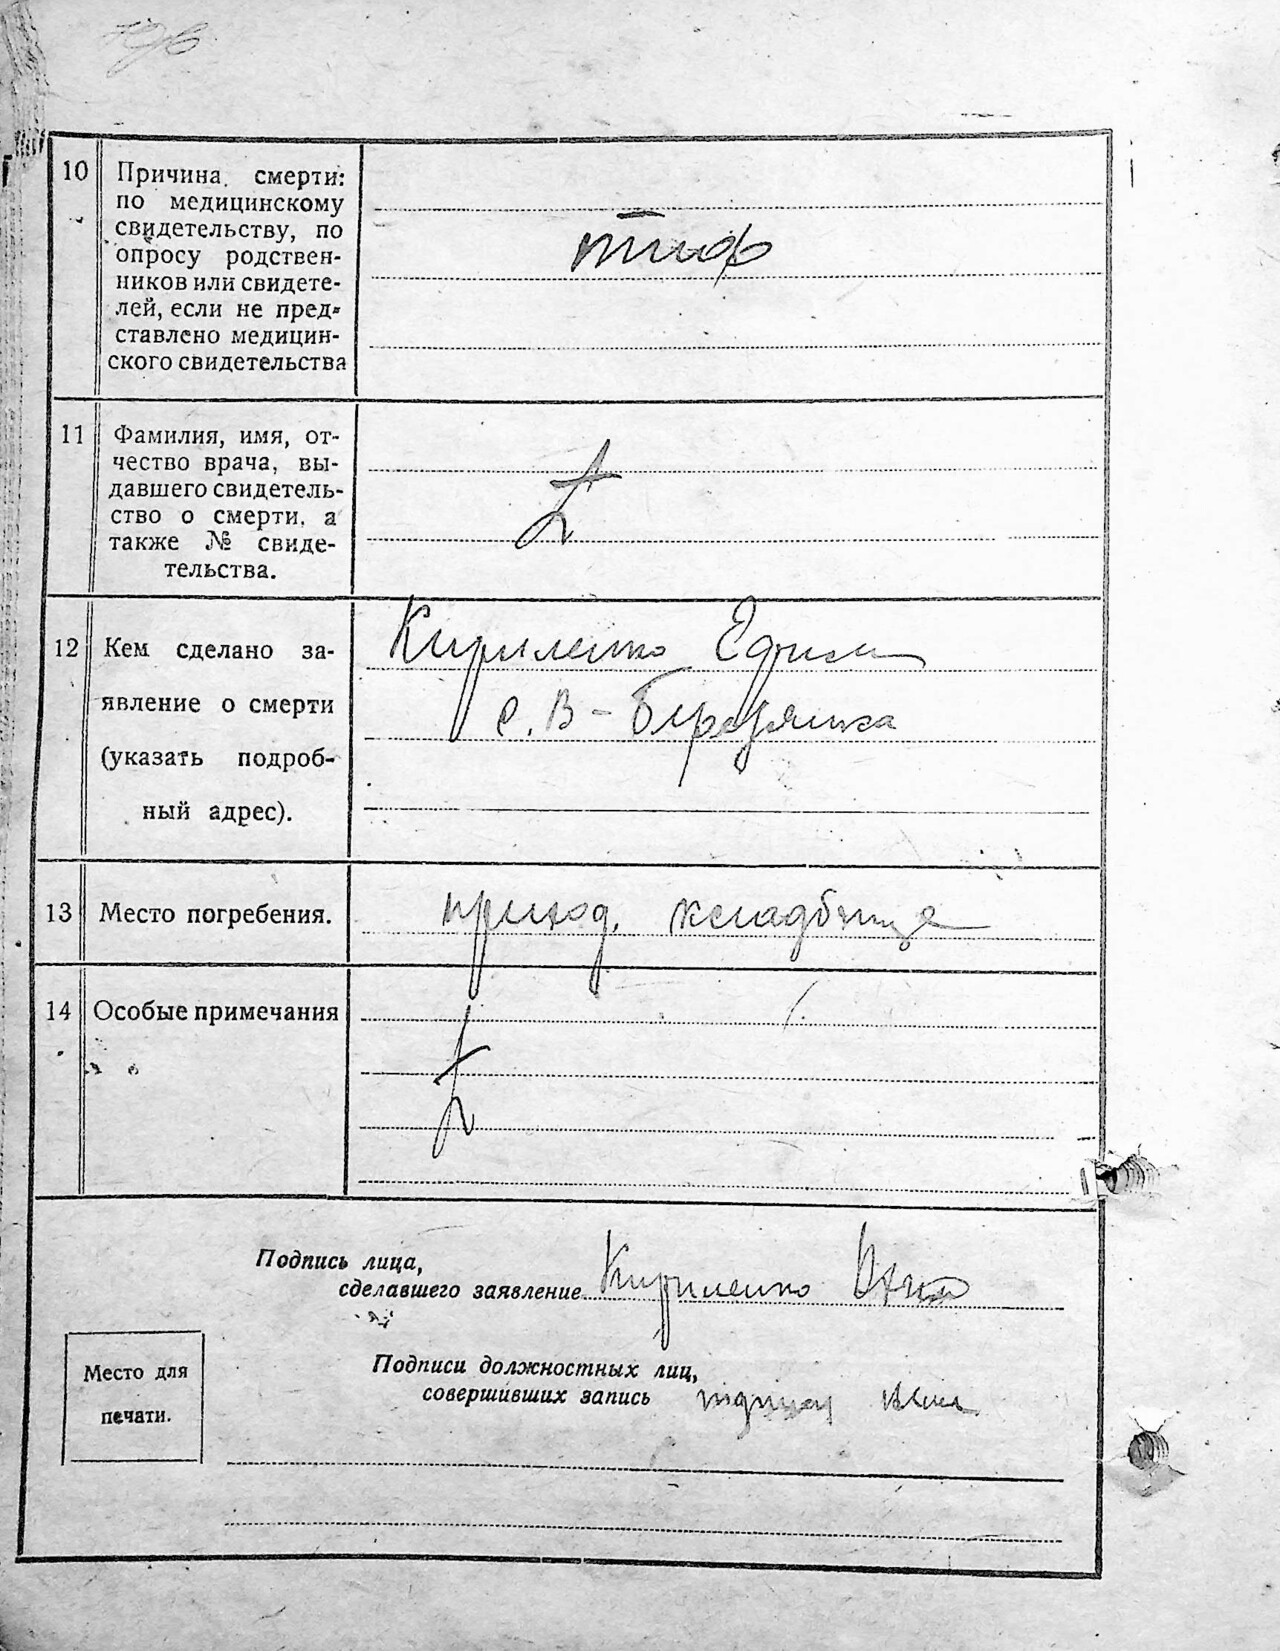 10 Причина смерти:
по медицинскому
свидетельству, по
опросу родствен-
ников или свидете-
лей, если не пред-
ставлено медицин-
ского свидетельства
тиф
11 Фамилия, имя, от-
чество врача, вы-
давшего свидетель-
ство о смерти, а
также № свиде-
тельства.
12 Кем сделано за-
явление о смерти
(указать подроб-
ный адрес).
Кириленко Ефим
с. В-Березянка
13 Место погребения.
приход. кладбище
14 Особые примечания
Подпись лица,
сделавшего заявление Кириленко
Подписи должностных лиц,
совершивших запись
Место для
печати.